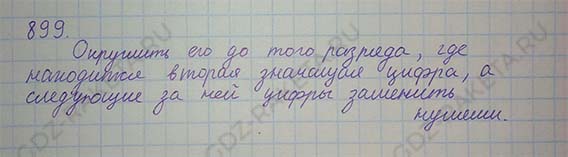 899.
Округлить его до того разряда, где
находится вторая значащая цифра, а
следующие за ней цифры заменить
нулями.
GDZ-RAKETA.RU